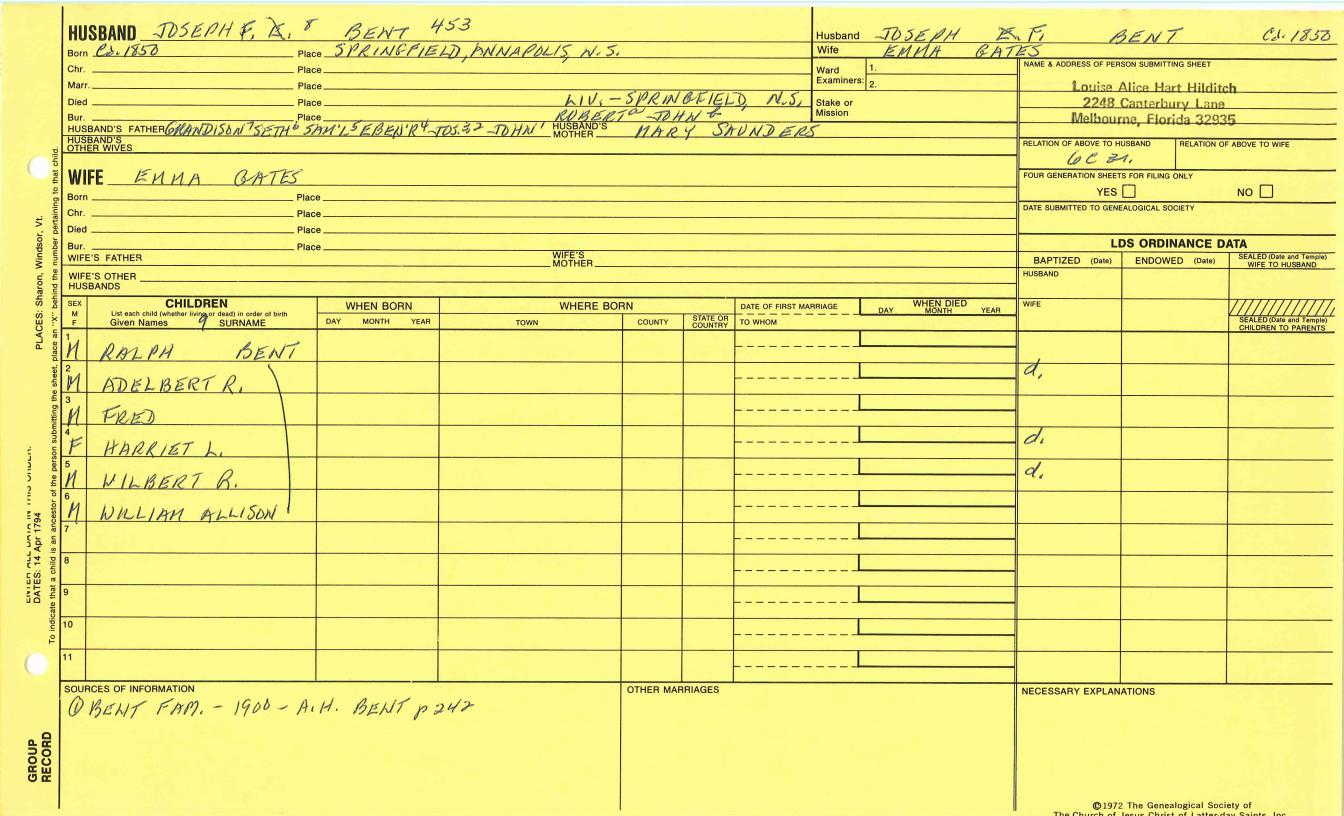 HUSBAND JOSEPH F. 8 BENT 453
Born Ca. 1850 Place SPRINGFIELD, ANNAPOLIS, N.S.
Chr. Place
Marr. Place
Died Place LIV. – SPRINGFIELD, N.S.
Bur. Place ROBERT a JOHN b
HUSBAND'S FATHER GRANDISON 7 SETH 6 SAM'L 5 EBEN'R 4 JOS. 32 JOHN 1 HUSBAND'S MOTHER MARY SAUNDERS
HUSBAND'S OTHER WIVES
Husband JOSEPH F. BENT Ca. 1850
Wife EMMA GATES
Ward Examiners: 1.
2.
Stake or Mission
NAME & ADDRESS OF PERSON SUBMITTING SHEET
Louise Alice Hart Hilditch
2248 Canterbury Lane
Melbourne, Florida 32935
RELATION OF ABOVE TO HUSBAND RELATION OF ABOVE TO WIFE
6C
FOUR GENERATION SHEETS FOR FILING ONLY
YES NO
DATE SUBMITTED TO GENEALOGICAL SOCIETY
WIFE EMMA GATES
Born Place
Chr. Place
Died Place
Bur. Place
WIFE'S FATHER WIFE'S MOTHER
WIFE'S OTHER HUSBANDS
LDS ORDINANCE DATA
BAPTIZED (Date) ENDOWED (Date) SEALED (Date and Temple) WIFE TO HUSBAND
HUSBAND
WIFE
SEALED (Date and Temple) CHILDREN TO PARENTS
SEX M F
CHILDREN
List each child (whether living or dead) in order of birth
Given Names 9 SURNAME
WHEN BORN
DAY MONTH YEAR
WHERE BORN
TOWN COUNTY STATE OR COUNTRY
DATE OF FIRST MARRIAGE
TO WHOM
WHEN DIED
DAY MONTH YEAR
1 M RALPH BENT
2 M ADELBERT R. d.
3 M FRED
4 F HARRIET L. d.
5 M WILBERT R. d.
6 M WILLIAM ALLISON
7
8
9
10
11
SOURCES OF INFORMATION
① BENT FAM. – 1900 – A.H. BENT p 242
OTHER MARRIAGES
NECESSARY EXPLANATIONS
©1972 The Genealogical Society of
The Church of Jesus Christ of Latter-day Saints, Inc.
PLACES: Sharon, Windsor, Vt.
ENTER ALL DATA IN THIS ORDER:
DATES: 14 Apr 1794
To indicate that a child is an ancestor of the person submitting the sheet, place an "X" behind the number pertaining to that child.
GROUP RECORD